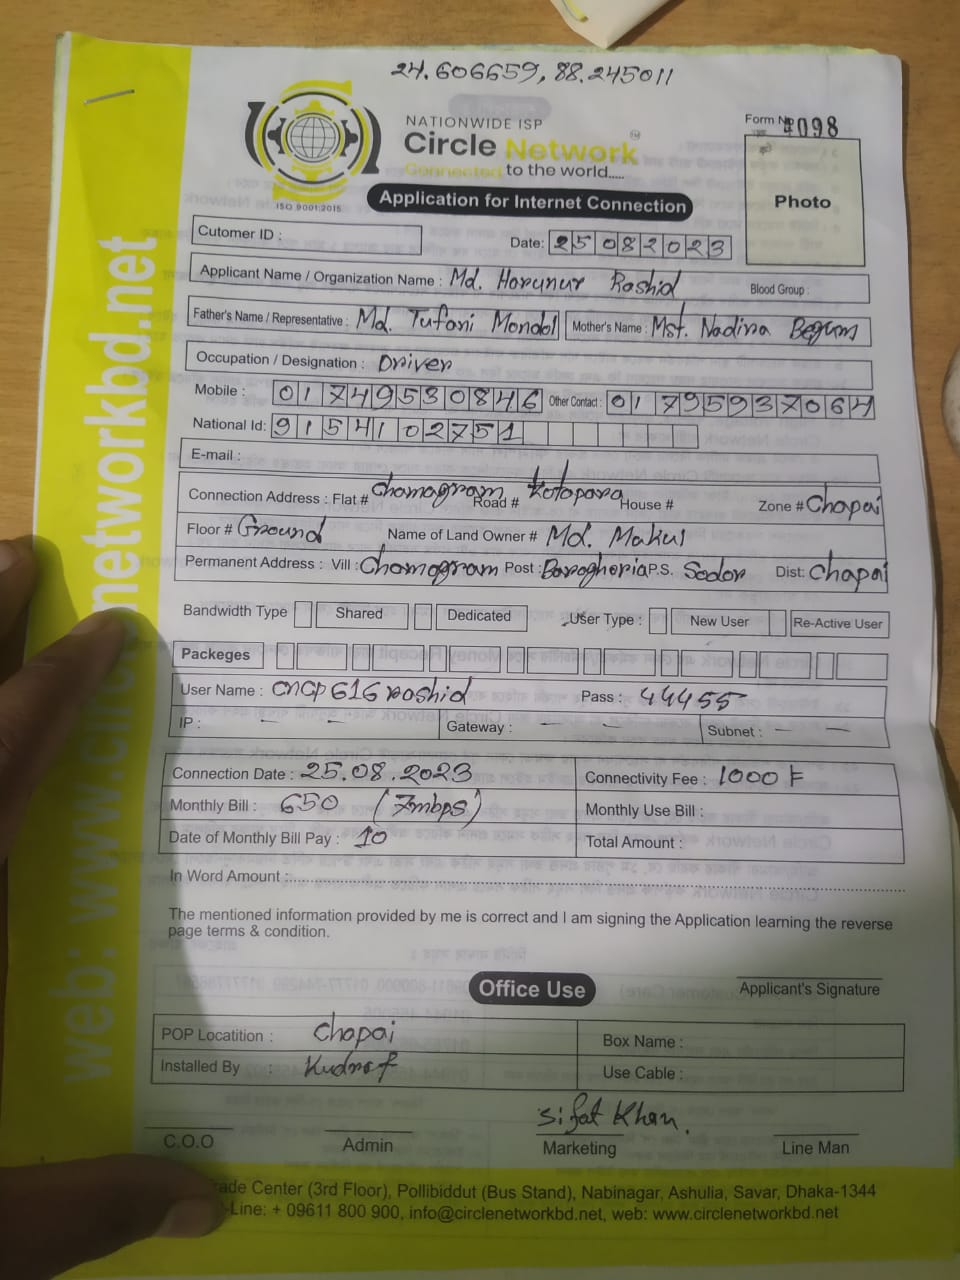 24.606659, 88.245011
NATIONWIDE ISP
Circle Network
Connected to the world.....
ISO 9001:2015
Form No 4098
Photo
Application for Internet Connection
Cutomer ID :
Date: 25082023
Applicant Name / Organization Name : Md. Horunur Rashid
Blood Group :
Father's Name / Representative : Md. Tufani Mondol Mother's Name : Mst. Nadira Begum
Occupation / Designation : Driver
Mobile : 01749530846 Other Contact : 01795937064
National Id: 9154102751
E-mail :
Connection Address : Flat # Chamagram Road # Kotapara House # Zone # Chapai
Floor # Ground Name of Land Owner # Md. Makul
Permanent Address : Vill : Chamagram Post : Baroghoria P.S. Sador Dist: Chapai
Bandwidth Type Shared Dedicated User Type : New User Re-Active User
Packeges
User Name : CNCP616rashid Pass : 44455
IP : — Gateway : — — Subnet : — —
Connection Date : 25.08.2023 Connectivity Fee : 1000 F
Monthly Bill : 650 (7mbps) Monthly Use Bill :
Date of Monthly Bill Pay : 10 Total Amount :
In Word Amount :
The mentioned information provided by me is correct and I am signing the Application learning the reverse
page terms & condition.
Office Use
Applicant's Signature
POP Locatition : Chapai Box Name :
Installed By : Use Cable :
Sifat Khan.
C.O.O Admin Marketing Line Man
rade Center (3rd Floor), Pollibiddut (Bus Stand), Nabinagar, Ashulia, Savar, Dhaka-1344
-Line: + 09611 800 900, info@circlenetworkbd.net, web: www.circlenetworkbd.net
web: www.circlenetworkbd.net